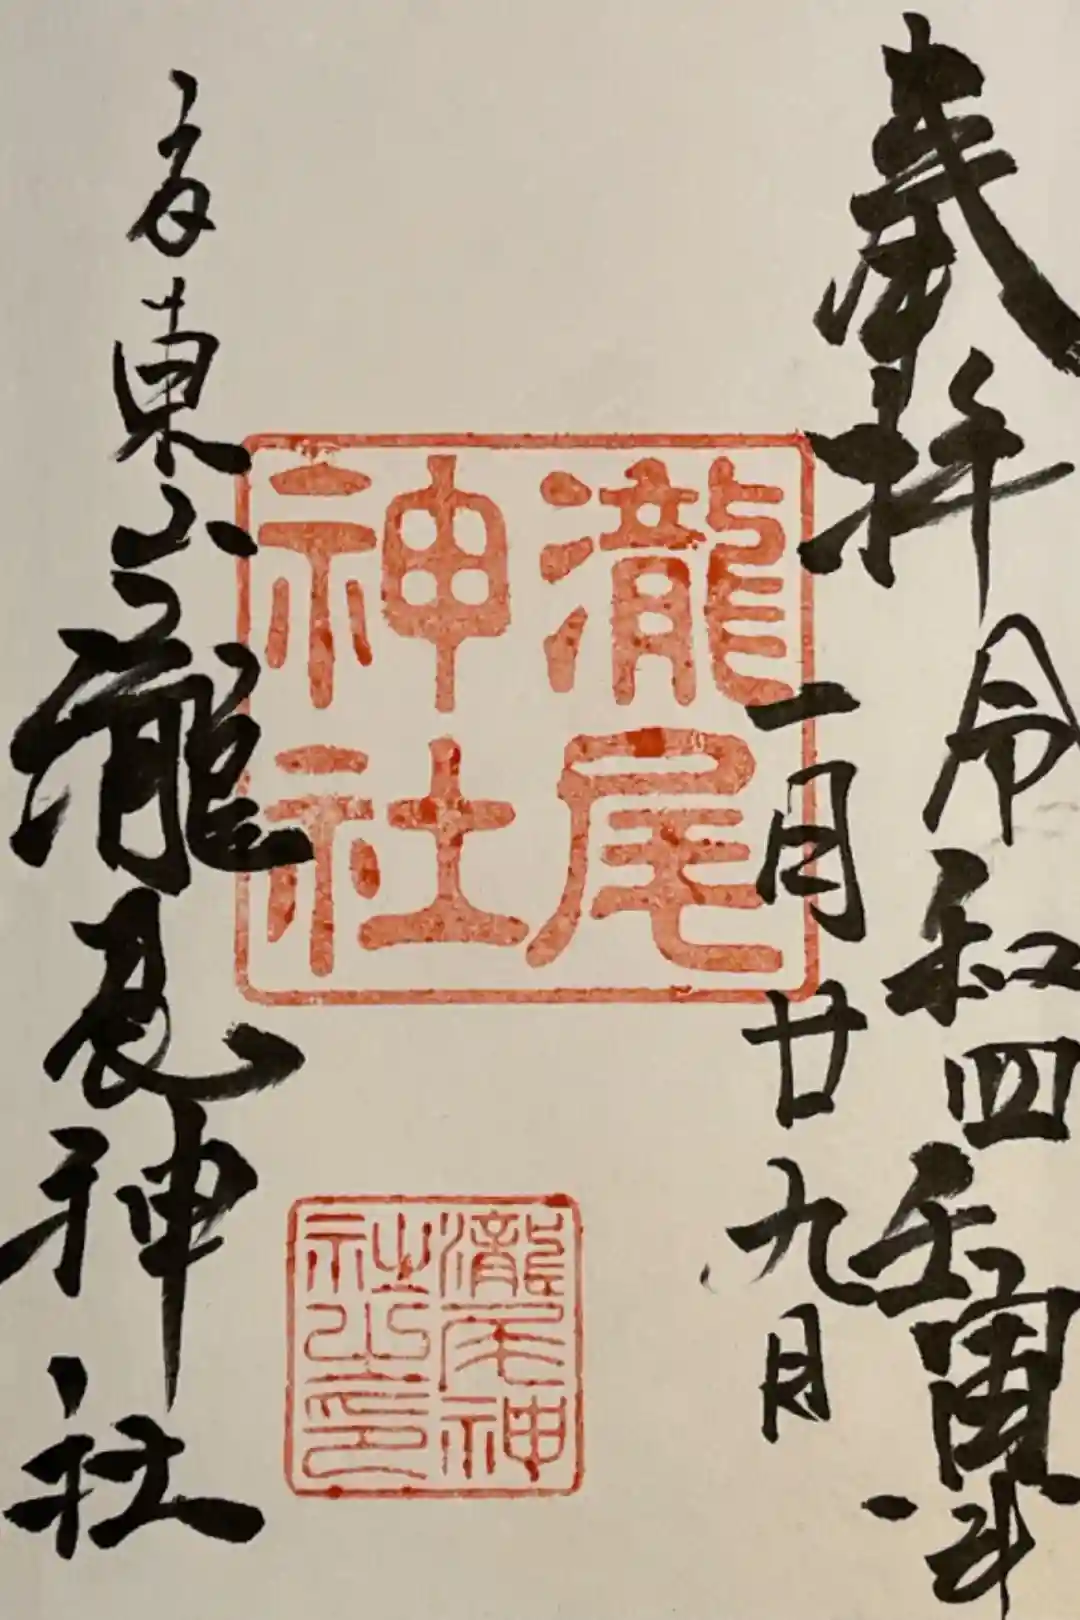 奉拝 令和四壬寅年
一月廿九日
瀧尾
神社
瀧尾神
社之印
東山 瀧尾神社